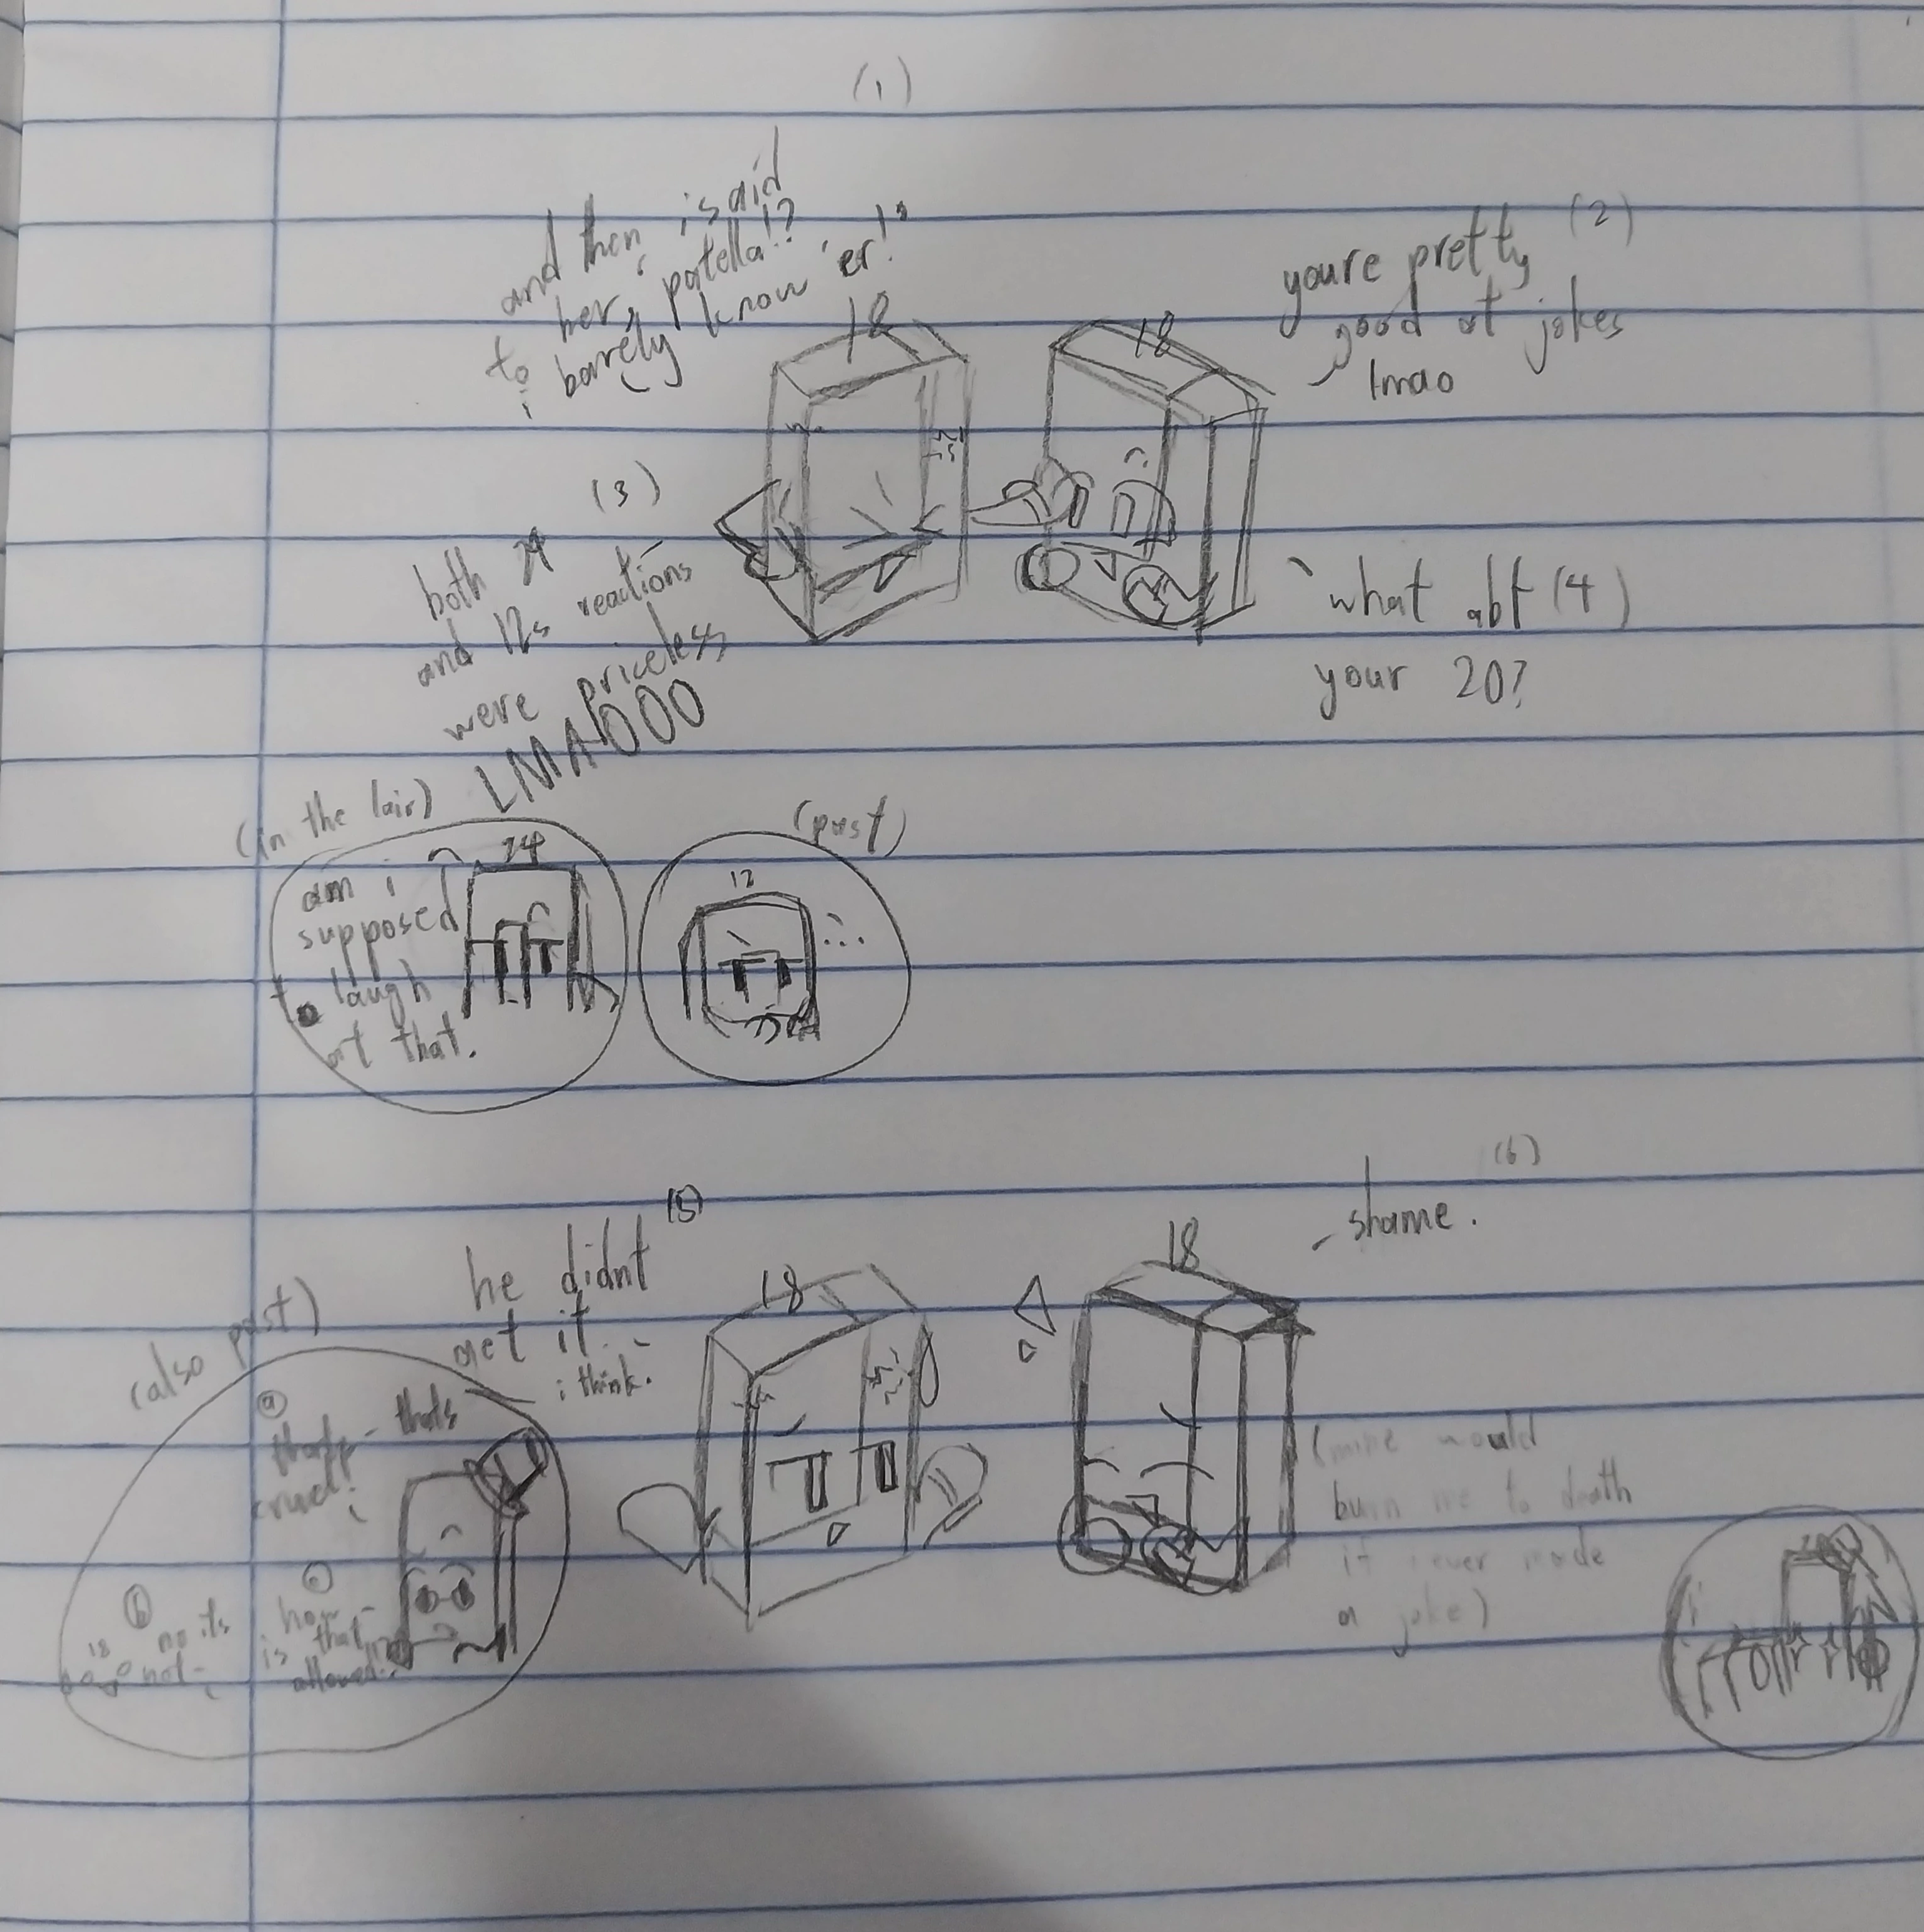 (1)
and then i said
to her, "patella!?
i barely know 'er!"
18
18
(2)
youre pretty
good at jokes
lmao
(3)
both 24
and 12s reactions
were priceless
LMAOOOO
what abt (4)
your 20?
(in the lair)
24
am i
supposed
to laugh
at that.
(past)
12
...
(5)
he didnt
get it..
i think.
18
(6)
shame.
18
(also past)
(a)
thats
cruel!
(b)
18
no its
not
(c)
how
is that
allowed..
(mine would
burn me to death
if i ever made
a joke)